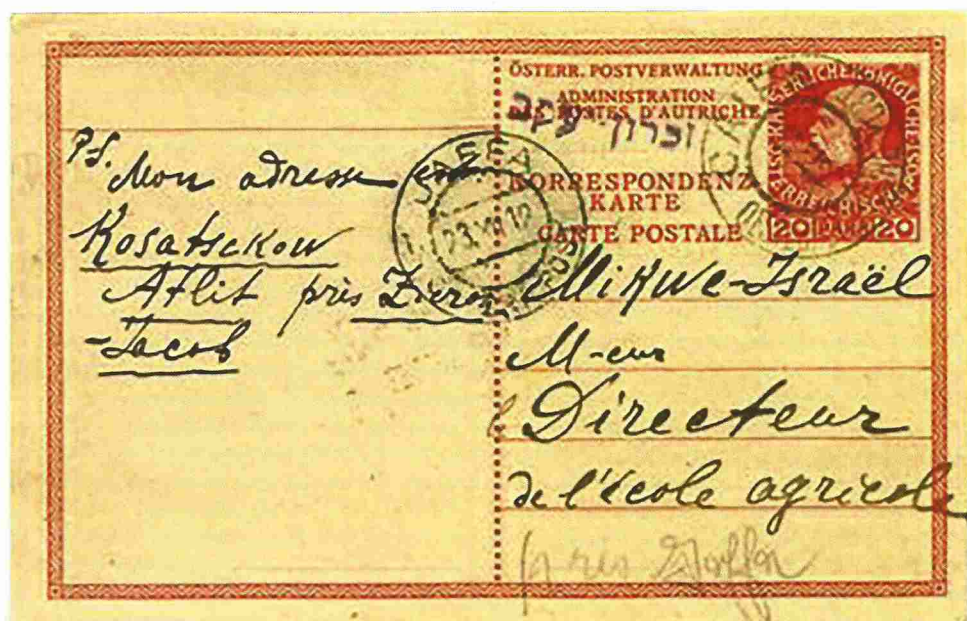 ÖSTERR. POSTVERWALTUNG
ADMINISTRATION
DES POSTES D'AUTRICHE
זכרון יעקב
KORRESPONDENZ-
KARTE
CARTE POSTALE
20 PARA 20
JAFFA
23. XII 12
P.S.
Mon adresse
Kosatsckow
Atlit près Zicron
-Jacob
Mikwe-Israël
M-eur
Directeur
de l'école agricole
près Jaffa